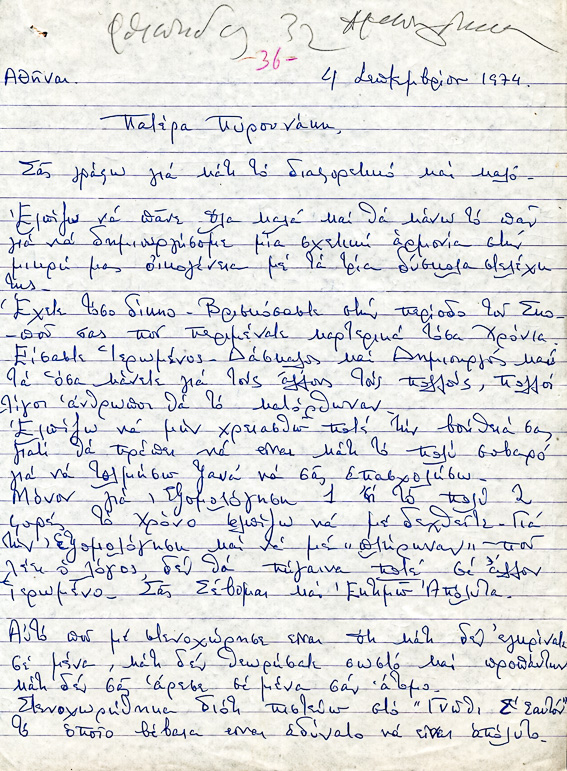 32
-36-
Αθήναι. 4 Σεπτεμβρίου 1974.
Πατέρα Πυρουνάκη,
Σᾶς γράφω γιά κάτι τό διαφορετικό καί καλό.
Ἐλπίζω νά πᾶνε ὅλα καλά καί θά κάνω τό πᾶν
γιά νά δημιουργήσομε μία σχετική ἁρμονία στήν
μικρή μας οἰκογένεια μέ τά τρία δύσκολα στελέχη
της.
Ἔχετε τόσο δίκηο - Βρισκόσαστε στήν περίοδο τοῦ Σκο-
-ποῦ σας πού περιμένατε καρτερικά τόσα Χρόνια.
Εἴσαστε Ἱερωμένος - Δάσκαλος καί Δημιουργός καί
τά ὅσα κάνετε γιά τούς ἄλλους τούς πολλούς, πολλοί
λίγοι ἄνθρωποι θά τό κατόρθωναν
Ἐλπίζω νά μήν χρειασθῶ ποτέ τήν βοήθειά σας,
γιατί θά πρέπει νά εἶναι κάτι τό πολύ σοβαρό
γιά νά τολμήσω ξανά νά σᾶς ἀπασχολήσω -
Μόνον γιά Ἐξομολόγηση 1 ἤ τό πολύ 2
φορές τό χρόνο ἐλπίζω νά μέ δεχθεῖτε - Γιά
τήν Ἐξομολόγηση καί νά μέ - πού
λέει ὁ λόγος, δέν θά πήγαινα ποτέ σέ ἄλλον
Ἱερωμένο - Σᾶς Σέβομαι καί Ἐκτιμῶ Ἀπόλυτα.
Αὐτό πού μέ στενοχώρησε εἶναι ὅτι κάτι δέν ἐγκρίνατε
σέ μένα, κάτι δέν θεωρήσατε σωστό καί προπάντων
κάτι δέν σᾶς ἄρεσε σέ μένα σάν ἄτομο.
Στενοχωρήθηκα διότι πιστεύω στό "Γνῶθι Σ' Ἑαυτόν"
τό ὁποῖο βέβαια εἶναι ἀδύνατο νά εἶναι ἀπόλυτο.